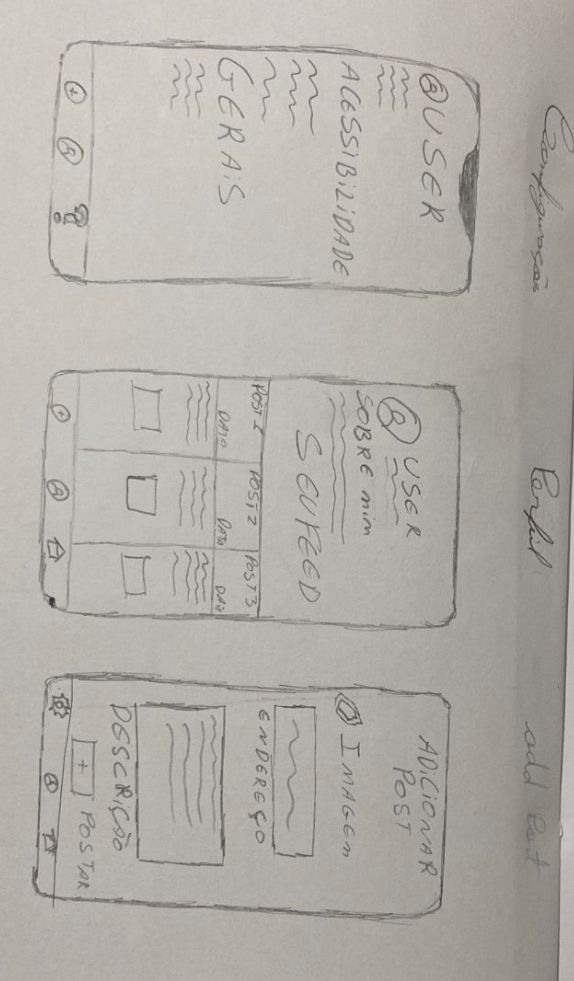 Configuração
@USER
ACESSIBILIDADE
GERAIS
Perfil
USER
SOBRE mim
SEU FEED
POST 1
DATA
POST 2
DATA
POST 3
DATA
add Post
ADICIONAR
POST
IMAGEM
ENDEREÇO
DESCRIÇÃO
+ POSTAR